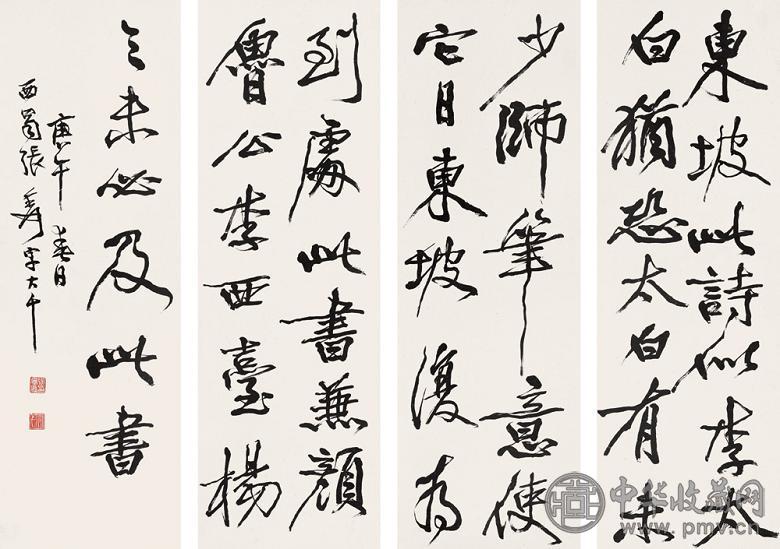 東坡此詩似李太
白猶恐太白有未
到處此書兼顏
魯公李西臺楊
少師筆意使
它日東坡復為
之未必及此書
庚午春日
西蜀張爰字大千
中华收藏网
www.pmv.cn